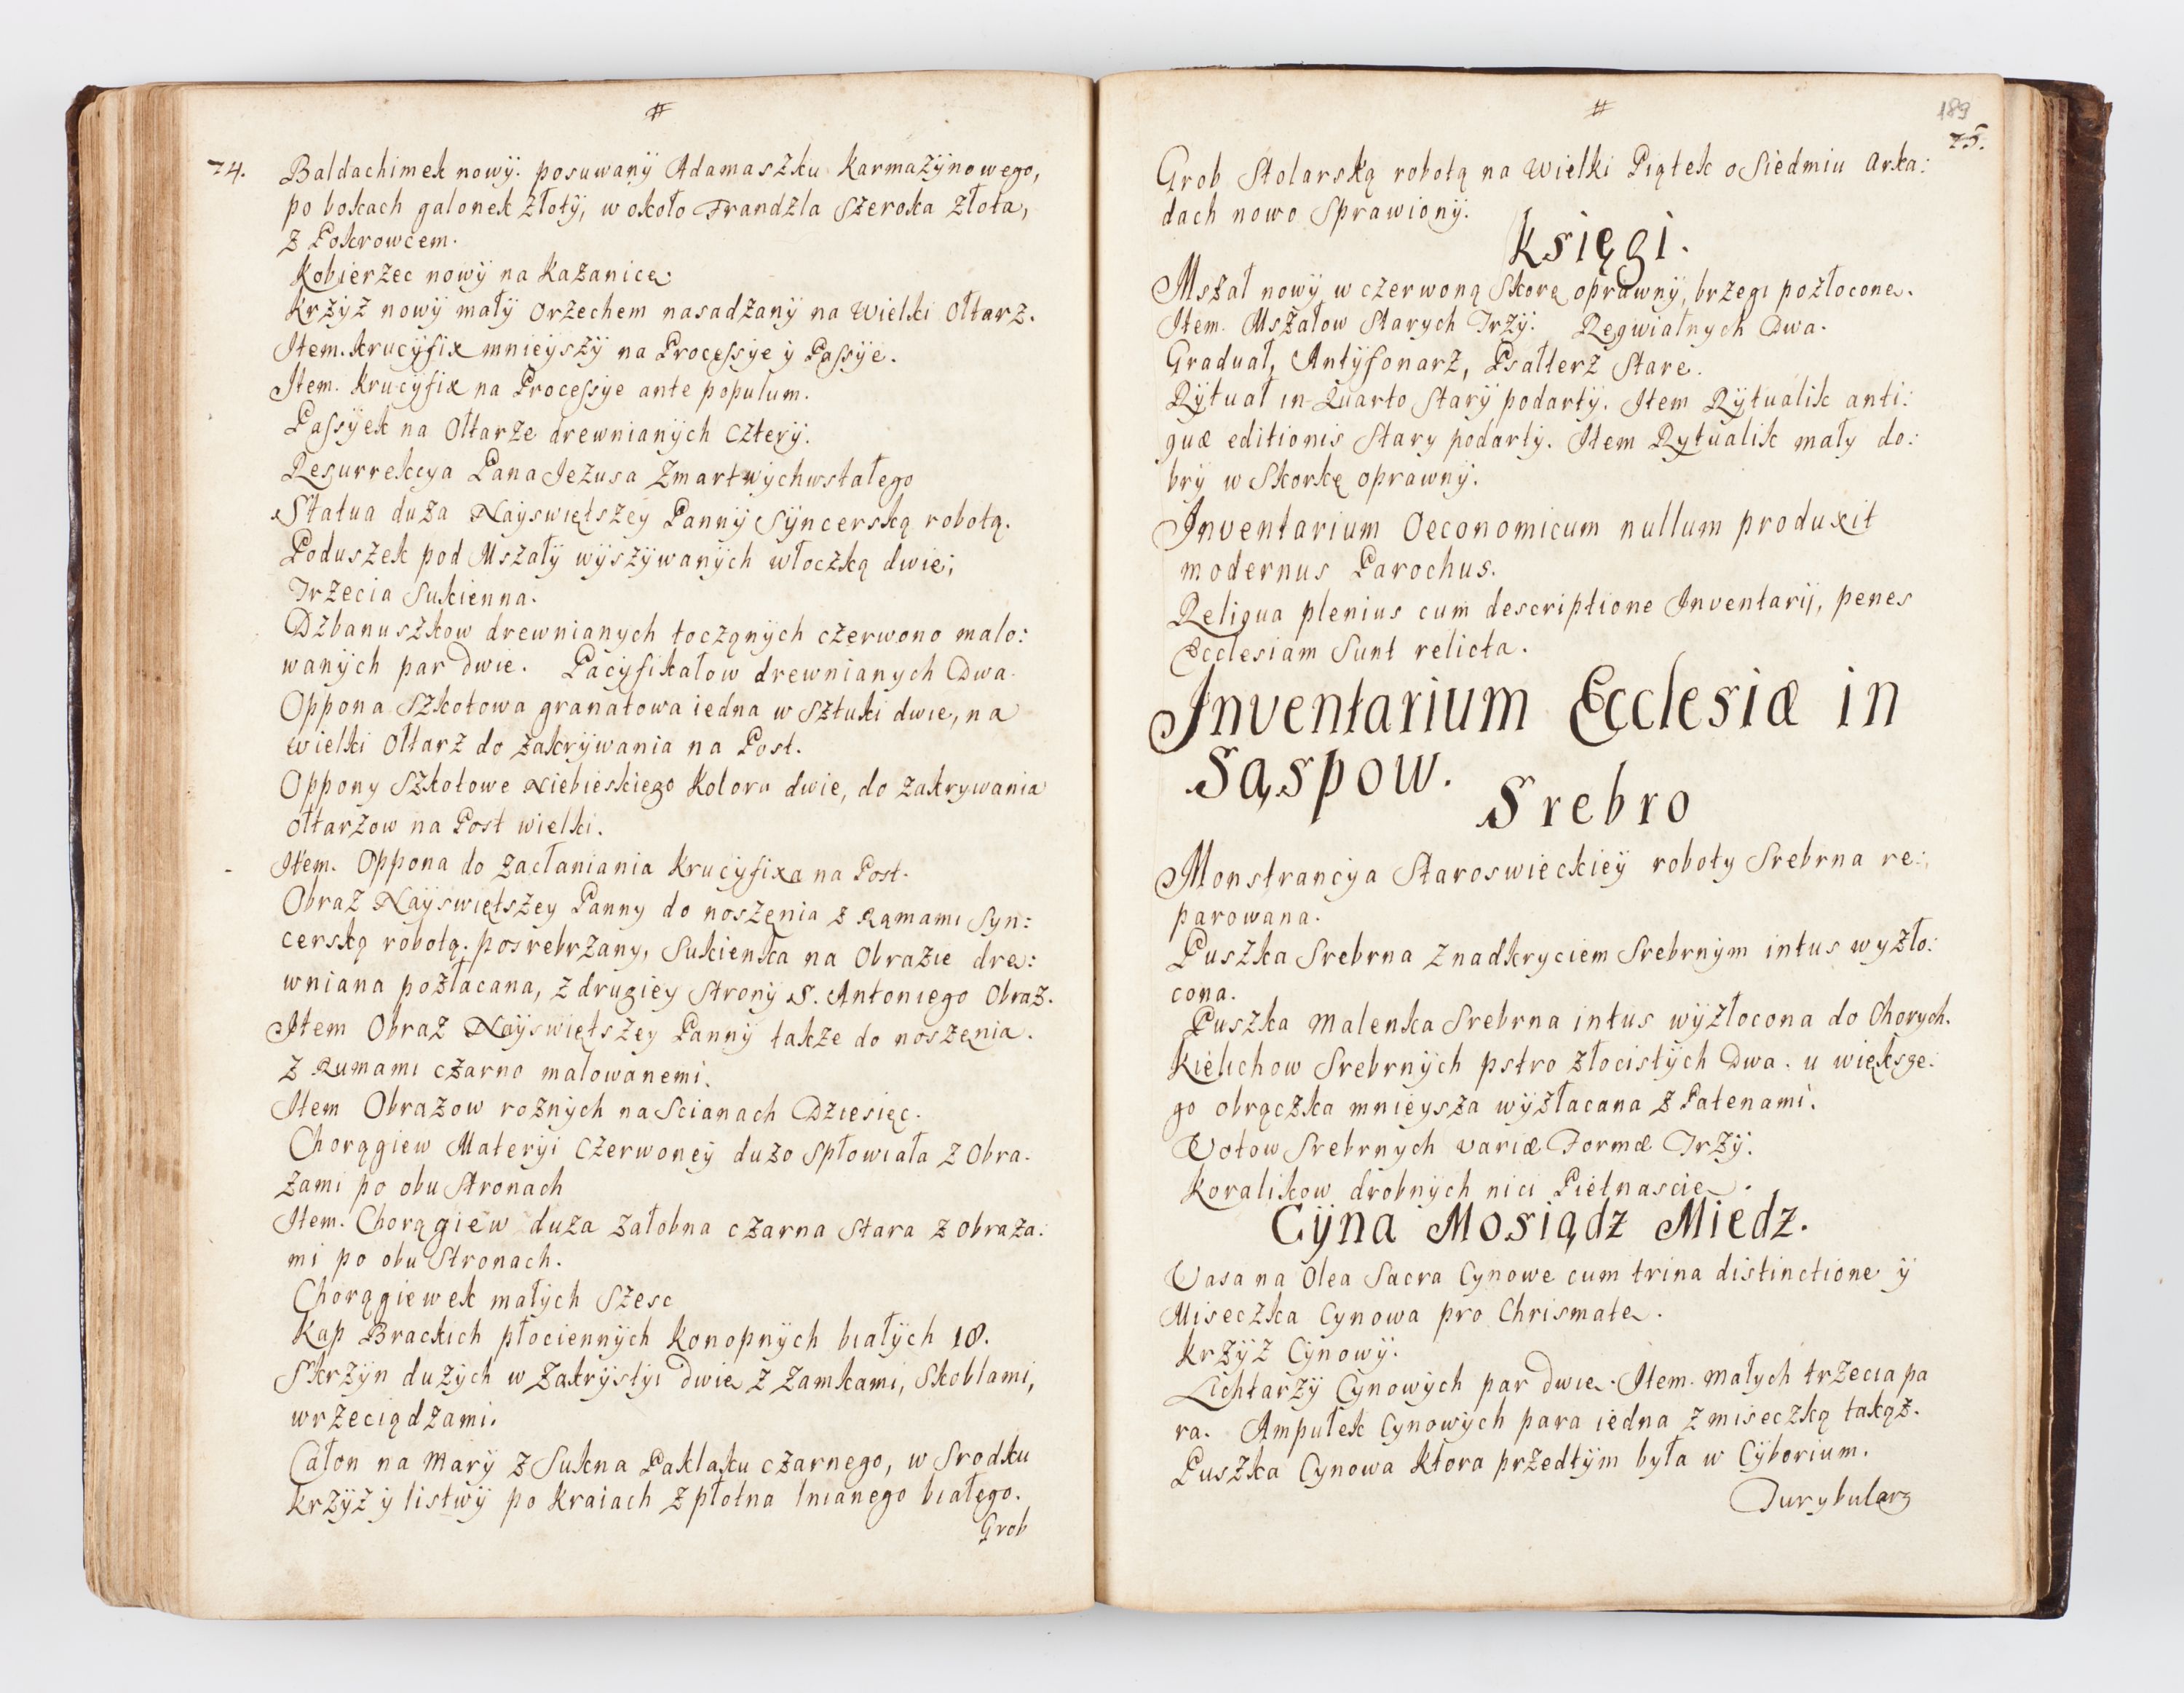 #
74.
Baldachimek nowÿ. posuwanÿ Adamaszku Karmazÿnowego,
po bokach galonek złotÿ, w około Frandzla Szeroka złota,
z Pokrowcem.
Kobierzec nowÿ na Kazanicę.
Krzÿż nowÿ małÿ orzechem nasadzanÿ na Wielki Ołtarz.
Item. Krucÿfix mnieÿszÿ na Processye ÿ Passÿe.
Item. Krucÿfix na Processÿe ante populum.
Passÿek na Ołtarze drewnianÿch czterÿ.
Resurrekcya Pana Jezusa Zmartwÿchwstałego
Statua duża Naÿswiętszeÿ Pannÿ Sÿncerską robotą.
Poduszek pod Mszałÿ wÿszÿwanÿch włoczką dwie;
Trzecia Sukienna.
Dzbanuszkow drewnianych toczonÿch czerwono malo:
wanÿch par Dwie. Pacÿfikałow drewnianych Dwa.
Oppona Szkotowa granatowa iedna w Sztuki dwie, na
wielki Ołtarz do zakrÿwania na Post.
Oppony Szkotowe Niebieskiego Koloru dwie, do zakrywania
ołtarzow na Post wielki.
Item. Oppona do zacłaniania Krucÿfixa na Post.
Obraz Naÿswiętszey Panny do noszęnia z Ramami Syn:
cerską robotą. posrebrzany, Sukienka na Obrazie dre:
wniana pozłacana, z drugieÿ Stronÿ S. Antoniego Obraz.
Item Obraz Naÿswiętszey Pannÿ także do noszęnia.
z Ramami czarno malowanemi.
Item Obrazow rożnÿch na Scianach Dziesięc.
Chorągiew Materÿi Czerwoneÿ dużo Spłowiała z Obra.
zami po obu Stronach
Item. Chorągiew duża żałobna czarna Stara z Obraza:
mi po obu Stronach.
Chorągiewek małÿch Szesc
Kap Brackich płociennÿch Konopnÿch białÿch 18.
Skrzÿn dużÿch w Zakrÿstÿi Dwie z zamkami, Skoblami,
wrzeciądzami.
Całon na Marÿ z Sukna Paklaku czarnego, w Srodku
Krzÿż ÿ listwÿ po Kraiach z płotna lnianego białego.
Grob
#
189
75.
Grob Stolarską robotą na Wielki Piątek o Siedmiu Arka:
dach nowo Sprawionÿ.
Księgi.
Mszał nowÿ w czerwoną Skorę oprawnÿ, brzegi pozłocone.
Item. Mszałow Starych Trzÿ. Reqwialnych Dwa.
Graduał, Antÿfonarz, Psałterz Stare.
Rÿtuał in Quarto Starÿ podartÿ. Item Rÿtualik anti:
quæ editionis Stary podartÿ. Item Rytualik małÿ do:
brÿ w Skorkę oprawnÿ.
Inventarium Oeconomicum nullum produxit
modernus Parochus.
Reliqua plenius cum descriptione Inventarij, penes
Ecclesiam Sunt relicta.
Inventarium Ecclesiæ in
Sąspow.
Srebro
Monstrancÿa Staroswieckieÿ roboty Srebrna re:
parowana.
Puszka Srebrna z nadkryciem Srebrnÿm intus wyzło:
cona.
Puszka Malenka Srebrna intus wÿzłocona do Chorych.
Kielichow Srebrnÿch pstro złocistÿch Dwa. u większe:
go obrączka mnieysza wÿzłacana z Patenami.
Votow Srebrnych variæ Formæ Trzÿ.
Koralikow drobnÿch nici Pietnascie.
Cÿna Mosiądz Miedz.
Vasa na Olea Sacra Cynowe cum trina distinctione ÿ
Miseczka Cynowa pro Chrismate.
Krzÿż Cÿnowÿ.
Lichtarzÿ Cynowÿch par dwie. Item. Małych trzecia pa
ra. Ampułek Cynowÿch para iedna z miseczką takąż.
Puszka Cynowa Ktora przedtÿm była w Cÿborium.
Turybularz